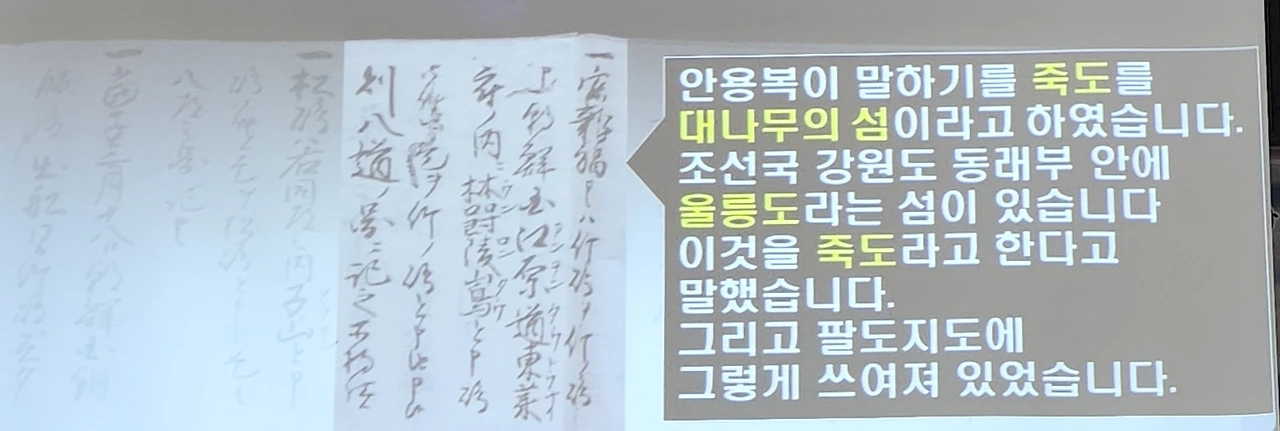 一安龍福申ハ竹嶋ヲ竹ノ嶋
と申朝鮮国江原道東莱
府ノ内ニ欝陵嶋と申嶋
御座候是ヲ竹ノ嶋と申由申候
則八道ノ図ニ記之所持仕候
一松嶋ハ右同道之内子山と申
八道之図ニ記申候
一当子三月十八日朝鮮国朝
안용복이 말하기를 죽도를
대나무의 섬이라고 하였습니다.
조선국 강원도 동래부 안에
울릉도라는 섬이 있습니다
이것을 죽도라고 한다고
말했습니다.
그리고 팔도지도에
그렇게 쓰여져 있었습니다.